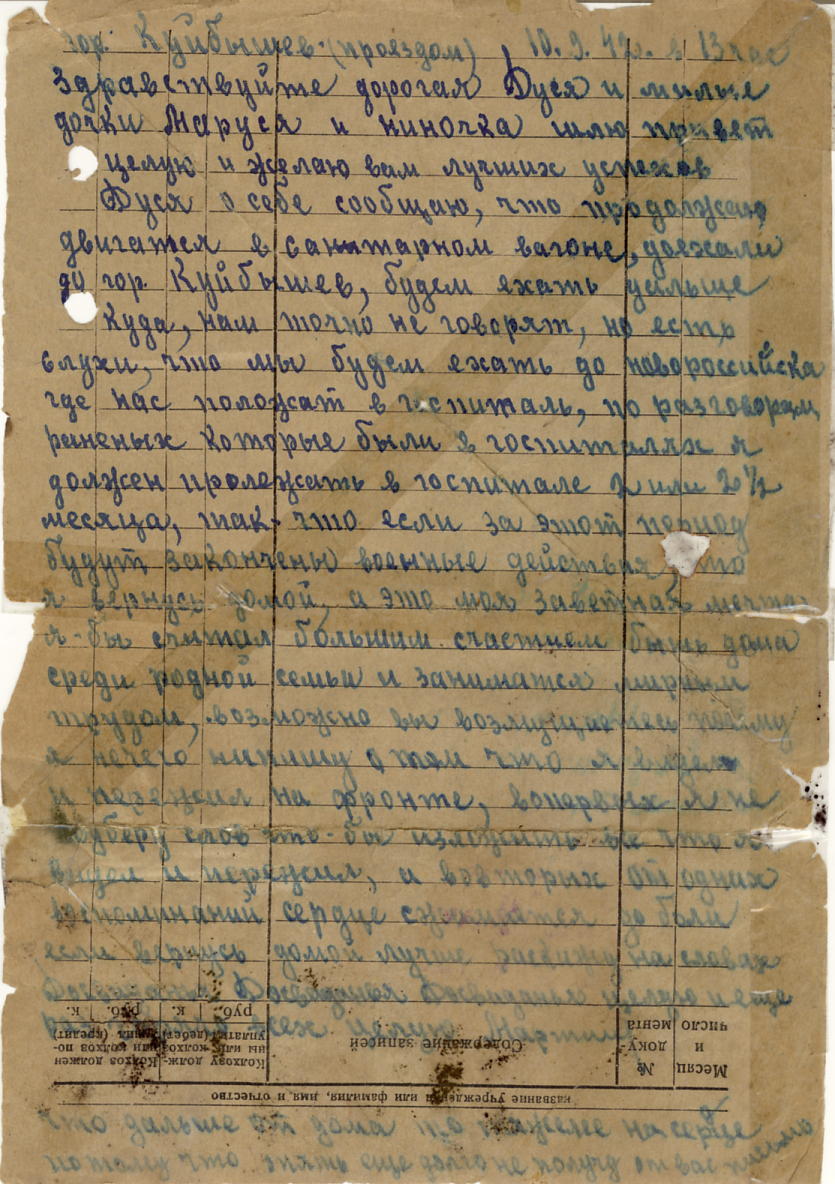 гор. Куйбышев (проездом), 10.9.42г. в 13 час
Здравствуйте дорогая Дуся и милые
дочки Маруся и ниночка шлю привет
целую и желаю вам лучших успехов
Дуся о себе сообщаю, что продолжаю
двигатся в санитарном вагоне, доехали
до гор. Куйбышев, будем ехать дальше
куда, нам точно не говорят, но есть
слухи, что мы будем ехать до новороссийска
где нас положат в госпиталь, по разговорам
раненых которые были в госпиталях я
должен пролежать в госпитале 2 или 2½
месяца, так-что если за этот период
будут закончены военные действия, то
я вернусь домой, а это моя заветная мечта
я-бы считал большим счастием быть дома
среди родной семьи и заниматся мирным
трудом, возможно вы возмущаетесь почему
я нечего непишу о том что я видел
и пережил на фронте, вопервых я не
подберу слов что-бы изложить все что я
видел и пережил, а вовторых от одних
воспоминаний сердце сжимается до боли
если вернусь домой лучше раскажу на словах
Досвиданья Досвиданья Досвиданья целую и еще
всех целую Мартин
Месяц и число
№ документа
Содержание записей
Колхозу должны или колхоз уплатил (дебет)
руб. к.
Колхоз должен или колхоз получил (кредит)
руб. к.
название учреждения или фамилия, имя и отчество
что дальше от дома то тяжелее на сердце
потому что опять еще долго не получу от вас письма